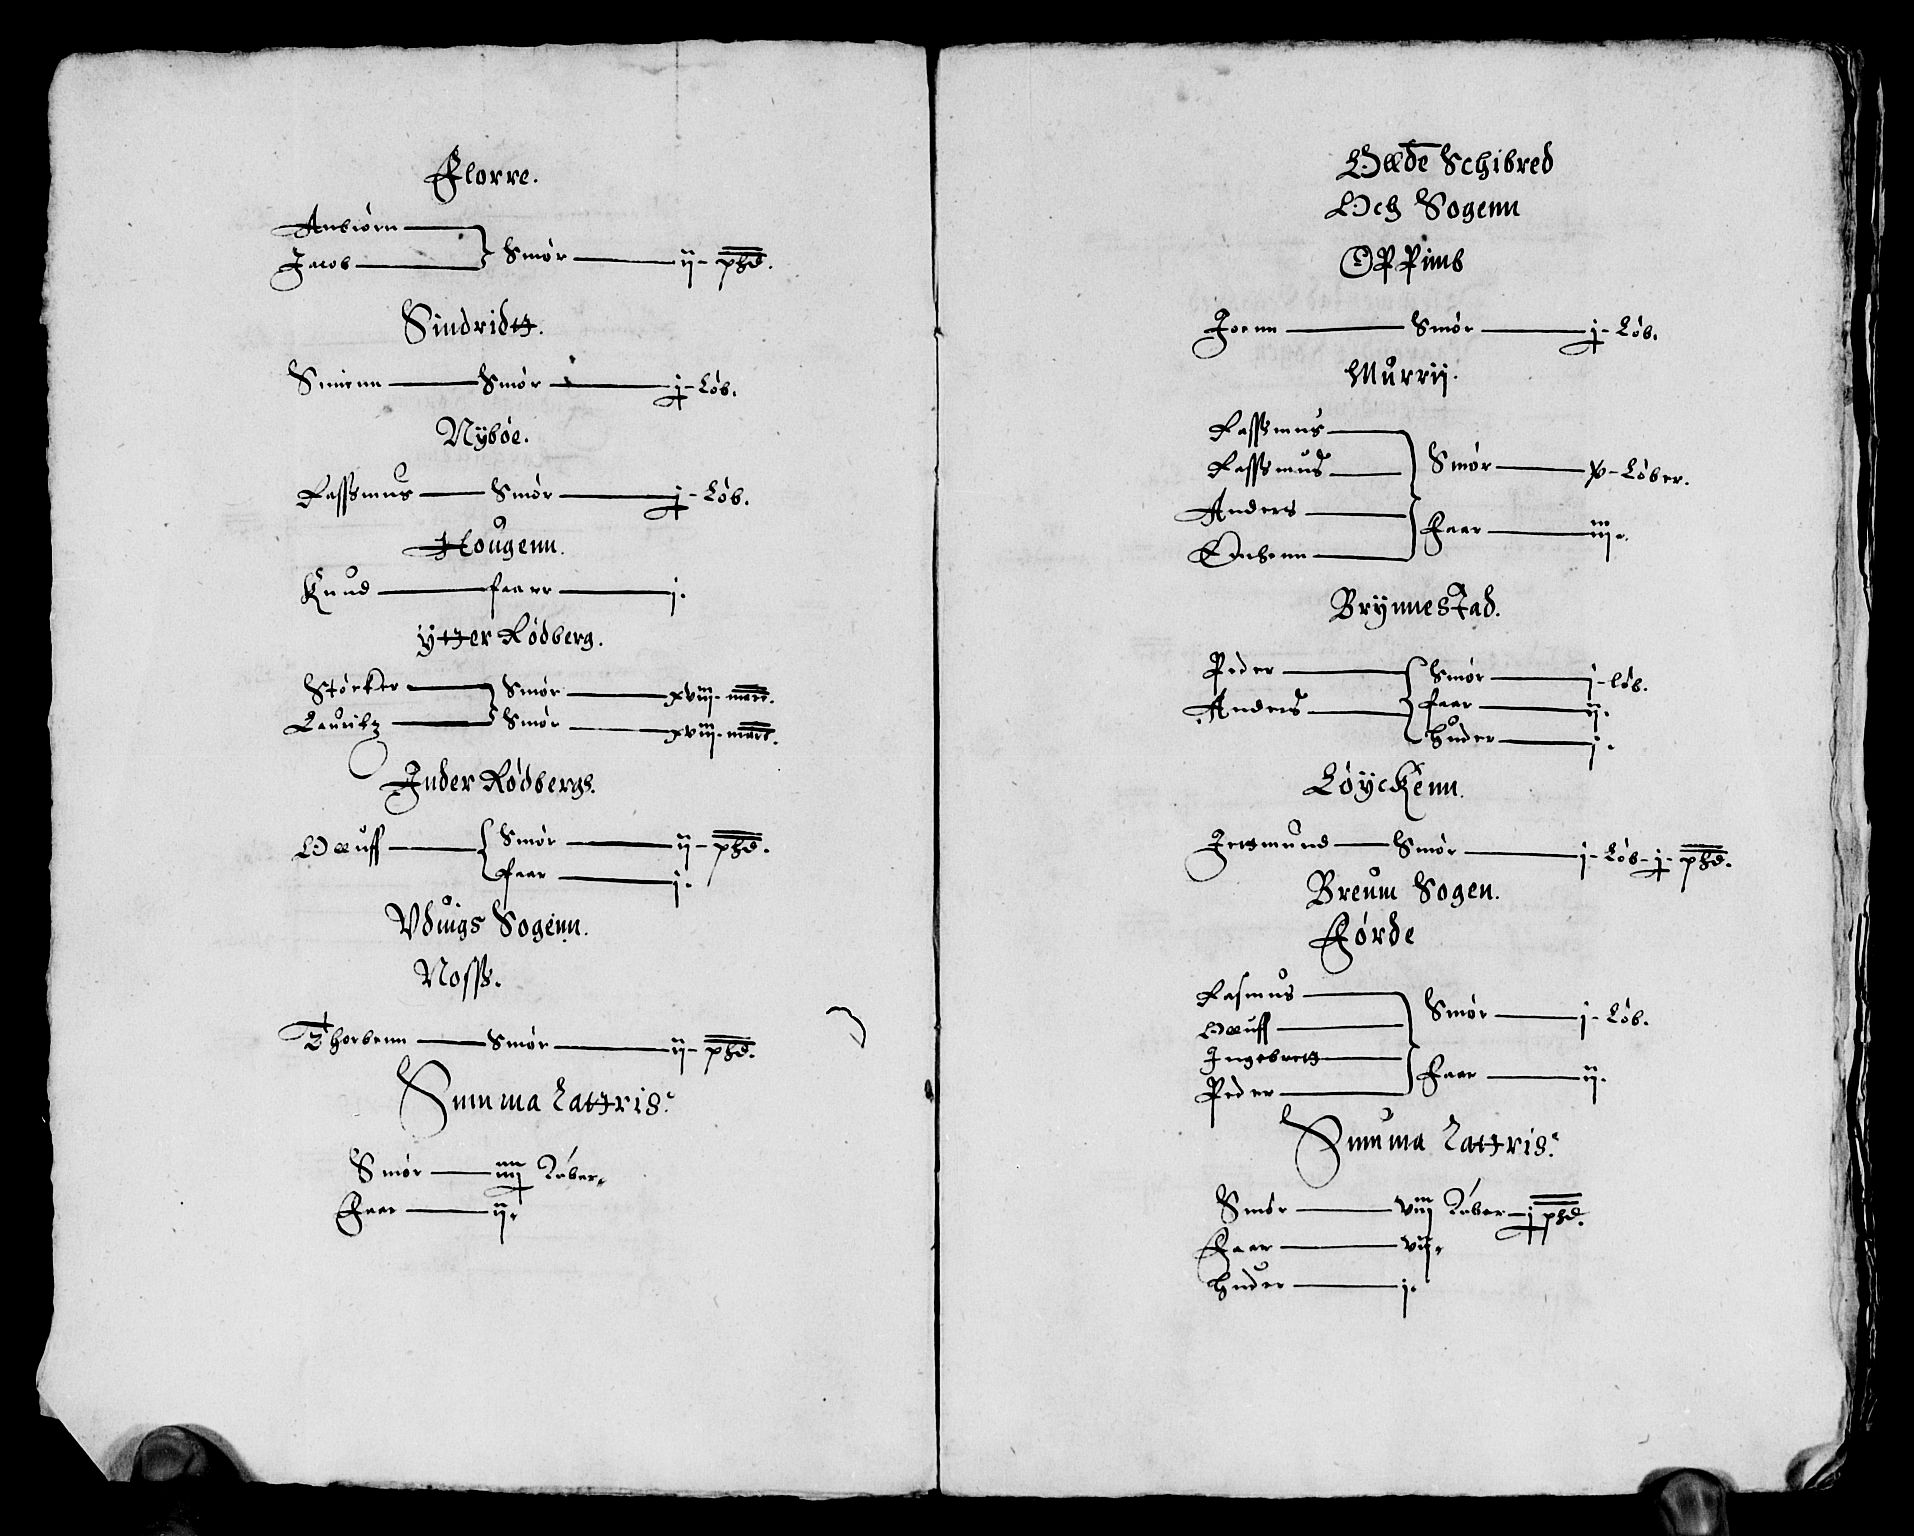 Florre.
Anbiørn
Jacob
Smør ij - phd.
Sindridtt.
Smør j - Løb.
Nÿbøe.
Rassmus Smør j - Løb.
Hougenn.
Knud faarr j.
Ÿtter Rødberg.
Størcker Smør xviij - marc.
Lauritz Smør xviij - marc.
Inder Rødbergh.
Oluff Smør ij - phd.
faar j.
Vduigs Sogenn.
Noss.
Thorbenn Smør ij - phd.
Summa Lattris.
Smør iiij Løber
Faar ij.
Olde Schibred
Och Sogenn
Oppimb
Joenn Smør j - Løb.
Murrij.
Rassmus
Rassmus
Anders
Smør v - Løber.
Faar iij.
Brÿnnestad.
Peder
Anders
Smør j - løb.
faar ij.
huder j.
Løÿckenn.
Smør j - Løb - j - phd.
Breum Sogen.
Førde
Rasmus
Oluff
Ingebrett
Peder
Smør j - Løb.
Faar ij.
Summa Lattris.
Smør viij Løber - j phd.
Faar vij.
huder j.